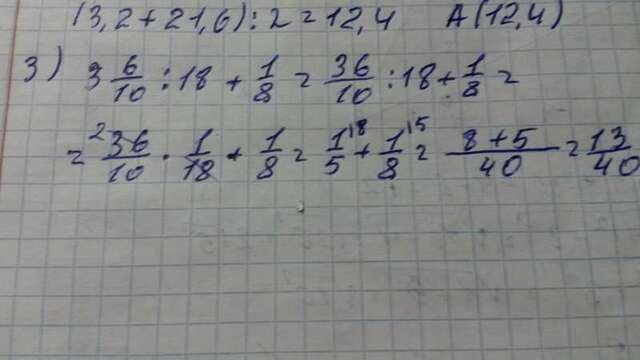 (3,2+21,6):2=12,4 A(12,4)
3) 3 6/10 : 18 + 1/8 = 36/10 : 18 + 1/8 =
= ²36/10 · 1/18 + 1/8 = 1/5 ⁱ⁸ + 1/8 ⁱ⁵ = 8+5/40 = 13/40